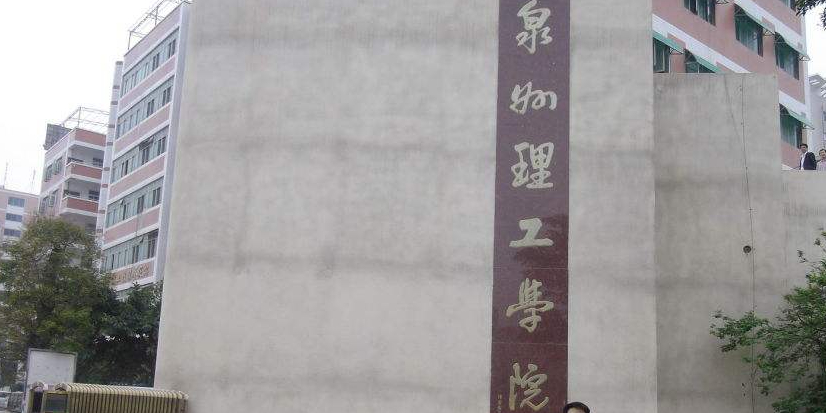 泉州理工學院